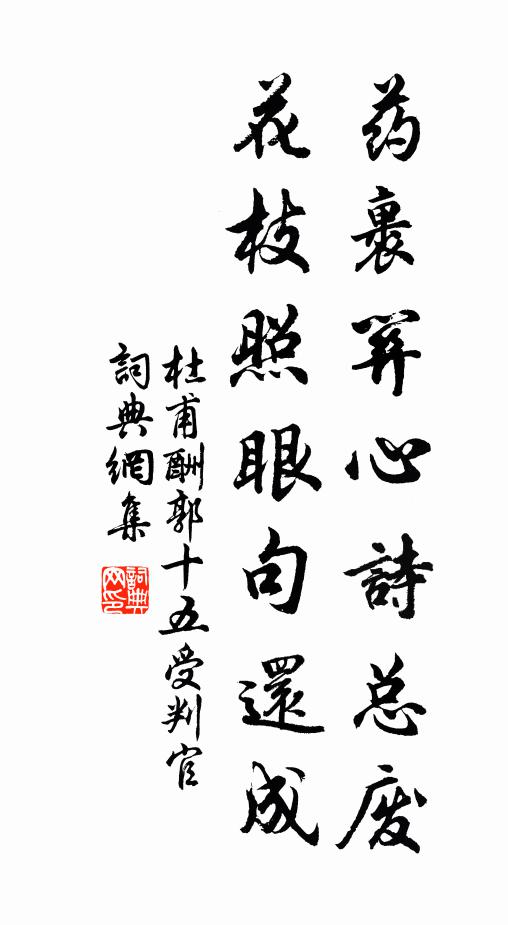 药裹関心詩总废
花枝照眼句還成
杜甫酬郭十五受判官
詞典網集
詞典网印